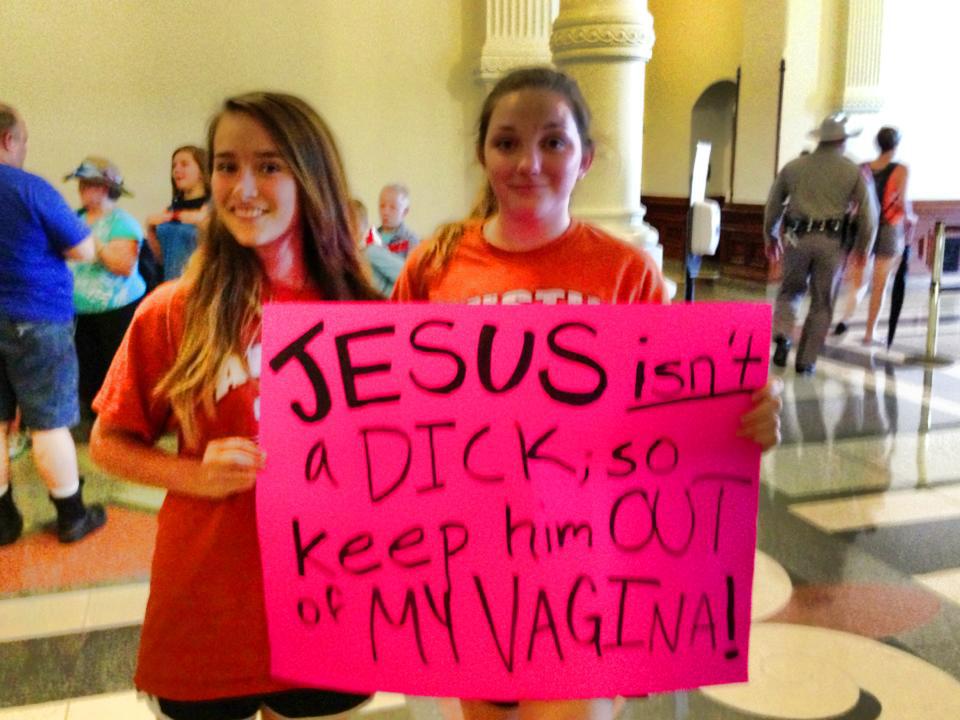 JESUS isn't
a DICK; so
keep him OUT
of MY VAGINA!